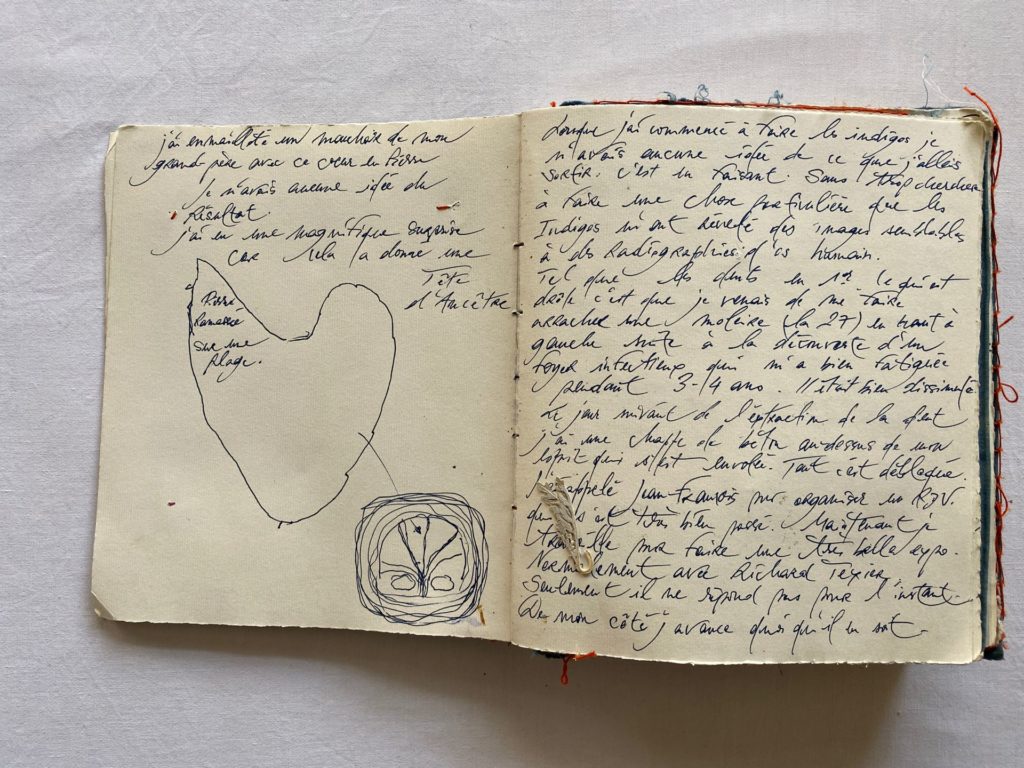 j'ai emmailloté un mouchoir de mon
grand père avec ce cœur en pierre
je n'avais aucune idée du
Résultat.
j'ai eu une magnifique surprise
car cela a donné une
Tête
d'Ancêtre
Pierre
Ramassée
sur une
plage.
Lorsque j'ai commencé à faire les indigos je
n'avais aucune idée de ce que j'allais
sortir. C'est en faisant. Sans trop chercher
à faire une chose particulière que les
Indigos m'ont révélé des images semblables
à des Radiographies d'os humain.
Tel que les dents en 1er. Ce qui est
drôle c'est que je venais de me faire
arracher une molaire (la 27) en haut à
gauche suite à la découverte d'un
foyer infectieux qui m'a bien fatiguée
pendant 3-4 ans. Il était bien dissimulé
Le jour suivant de l'extraction de la dent
j'ai une chappe de béton au-dessus de mon
esprit qui s'est envolée. Tout s'est débloqué.
J'ai appelé Jean-François pour organiser un RDV.
qui s'est très bien passé. Maintenant je
travaille pour faire une très belle expo.
Normalement avec Richard Texier.
Seulement il ne répond pas pour l'instant.
De mon côté j'avance quoi qu'il en soit.